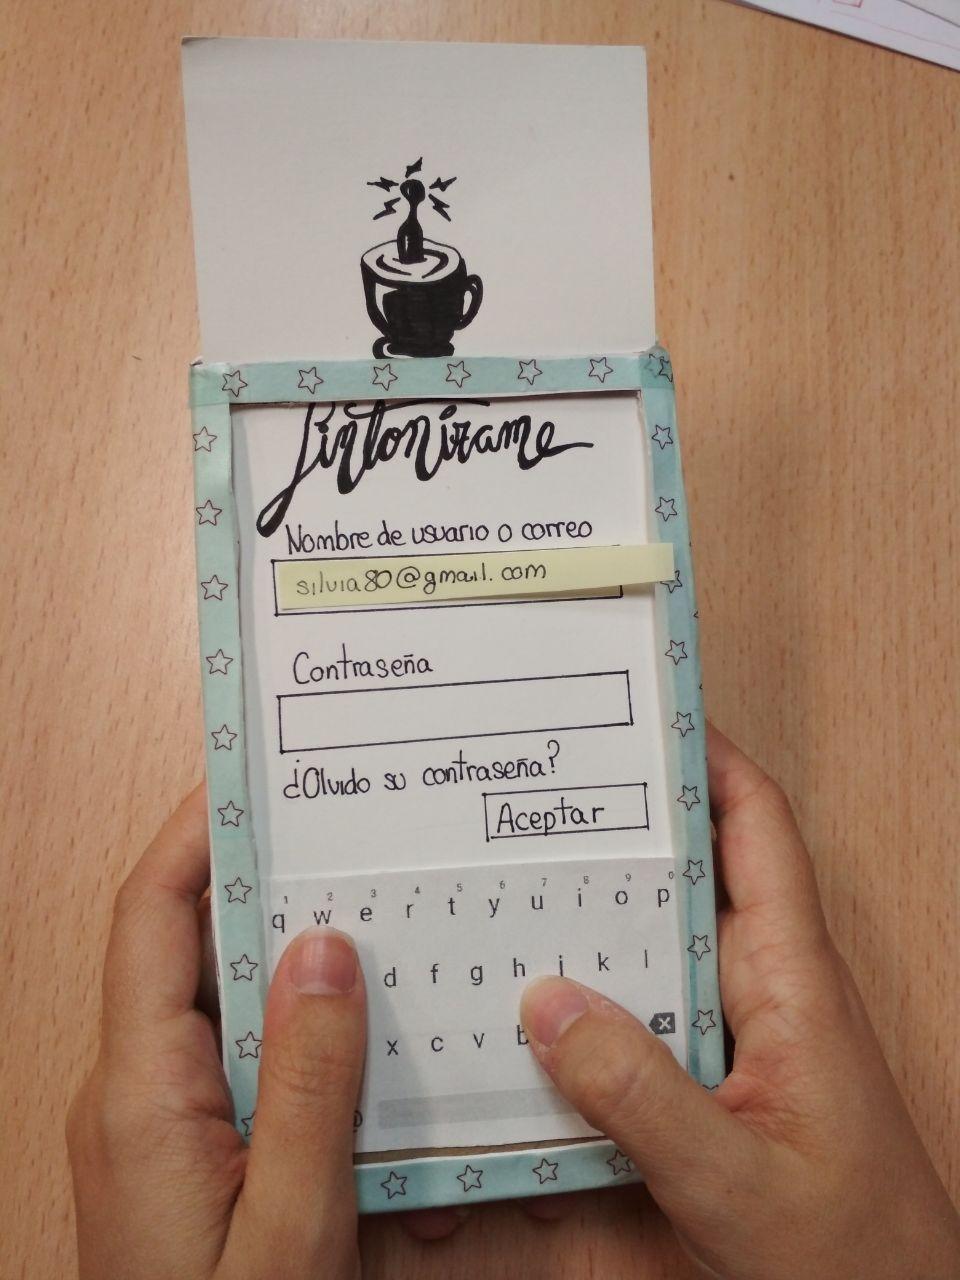 Sintonizame
Nombre de usuario o correo
silvia80@gmail.com
Contraseña
¿Olvido su contraseña?
Aceptar
1 2 3 4 5 6 7 8 9 0
q w e r t y u i o p
d f g h j k l
x c v b
@